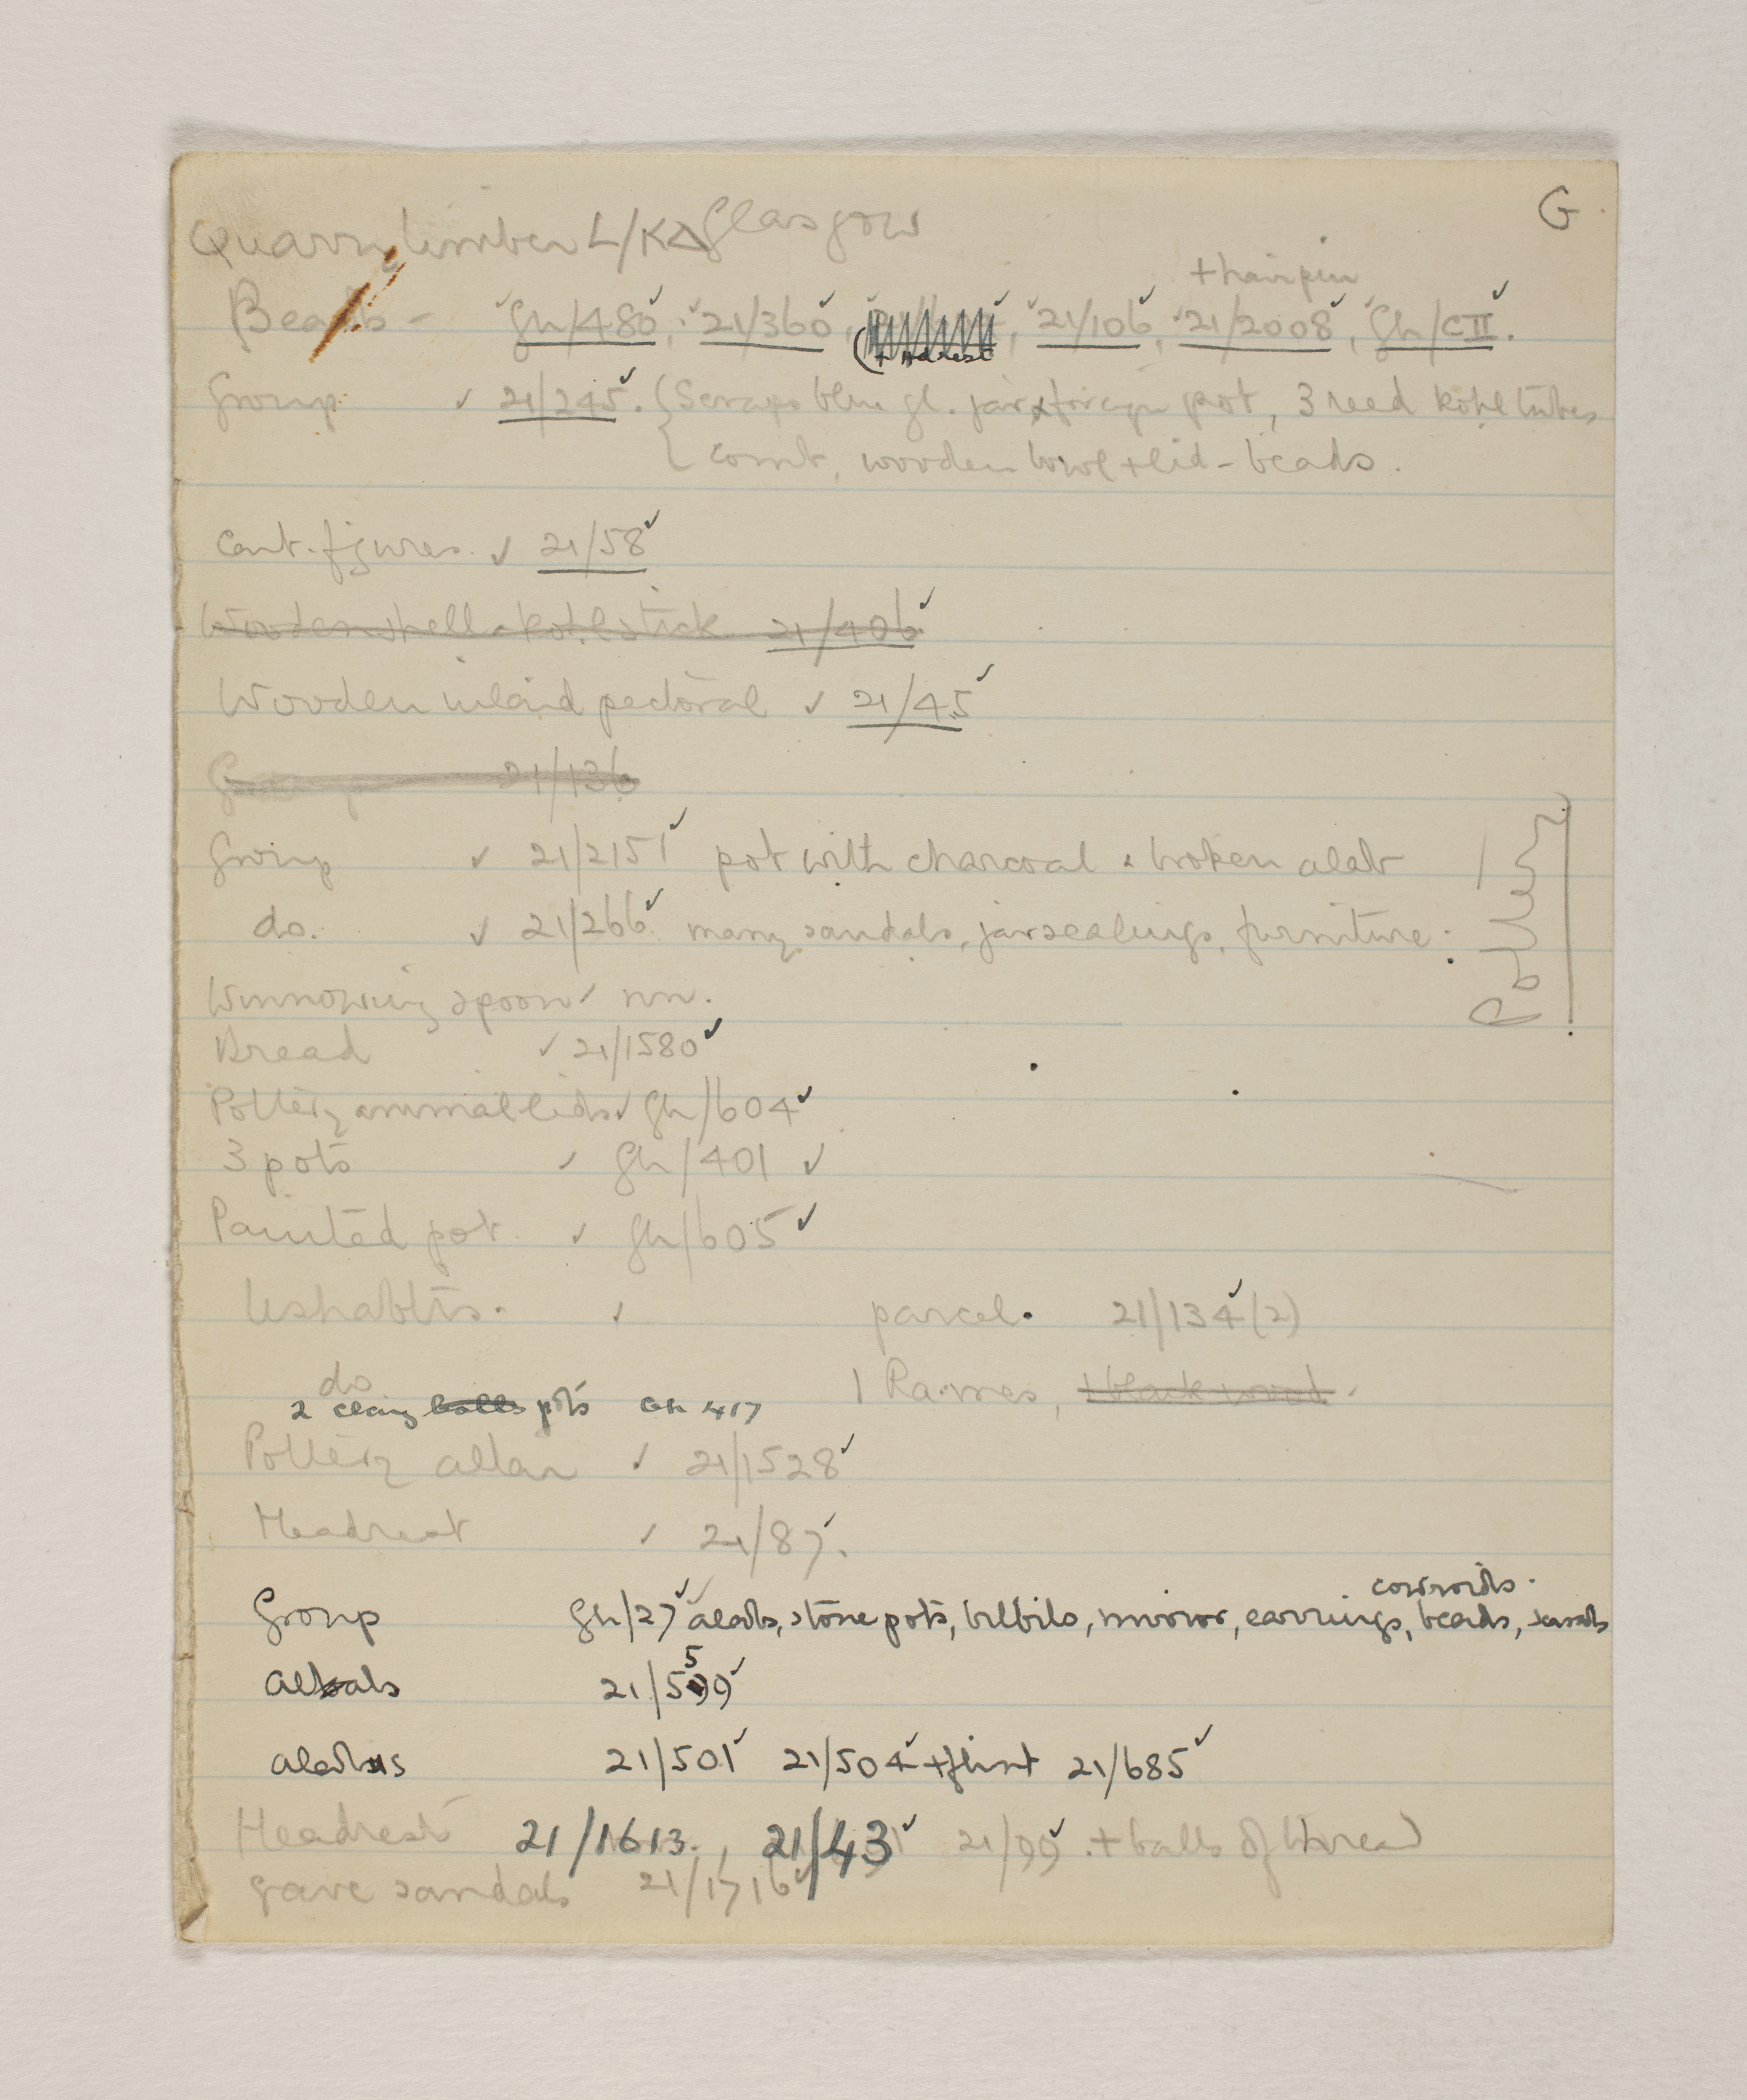 G
Quarry timber L/KΔ Glasgow
+ hairpin
Beads - Gh/480, 21/360, 21/106, 21/2008, Gh/CII.
(+ Hdrest
Group ✓ 21/245. { Scraps blue gl. jar & foreign pot, 3 reed kohl tubes
{ comb, wooden bowl + lid - beads.
Cart. figures ✓ 21/58
Wooden shell & kohl stick 21/406
Wooden inlaid pectoral ✓ 21/45
21/136
Group ✓ 21/2151 pot with charcoal & broken alab
do. ✓ 21/266 many sandals, jar sealings, furniture.
Pottery
Winnowing spoon ✓ nn.
Bread ✓ 21/1580 ✓
Pottery animal lids ✓ Gh/604 ✓
3 pots ✓ Gh/401 ✓
Painted pot ✓ Gh/605 ✓
Ushabtis. ✓ parcel. 21/134 (2)
do. 1 Ra-mes, + black wood.
2 clay balls pots Gh 417
Pottery altar ✓ 21/1528 ✓
Headrest ✓ 21/87.
cowroids.
Group Gh/27 ✓ alabs, stone pots, bilbils, mirror, earrings, beads, scarabs
5
alabs 21/599 ✓
alabs 21/501 ✓ 21/504 ✓ + flint 21/685 ✓
Headrest 21/1613., 21/43 ✓ 21/99 ✓. + balls of thread
Gave sandals 21/1716 ✓